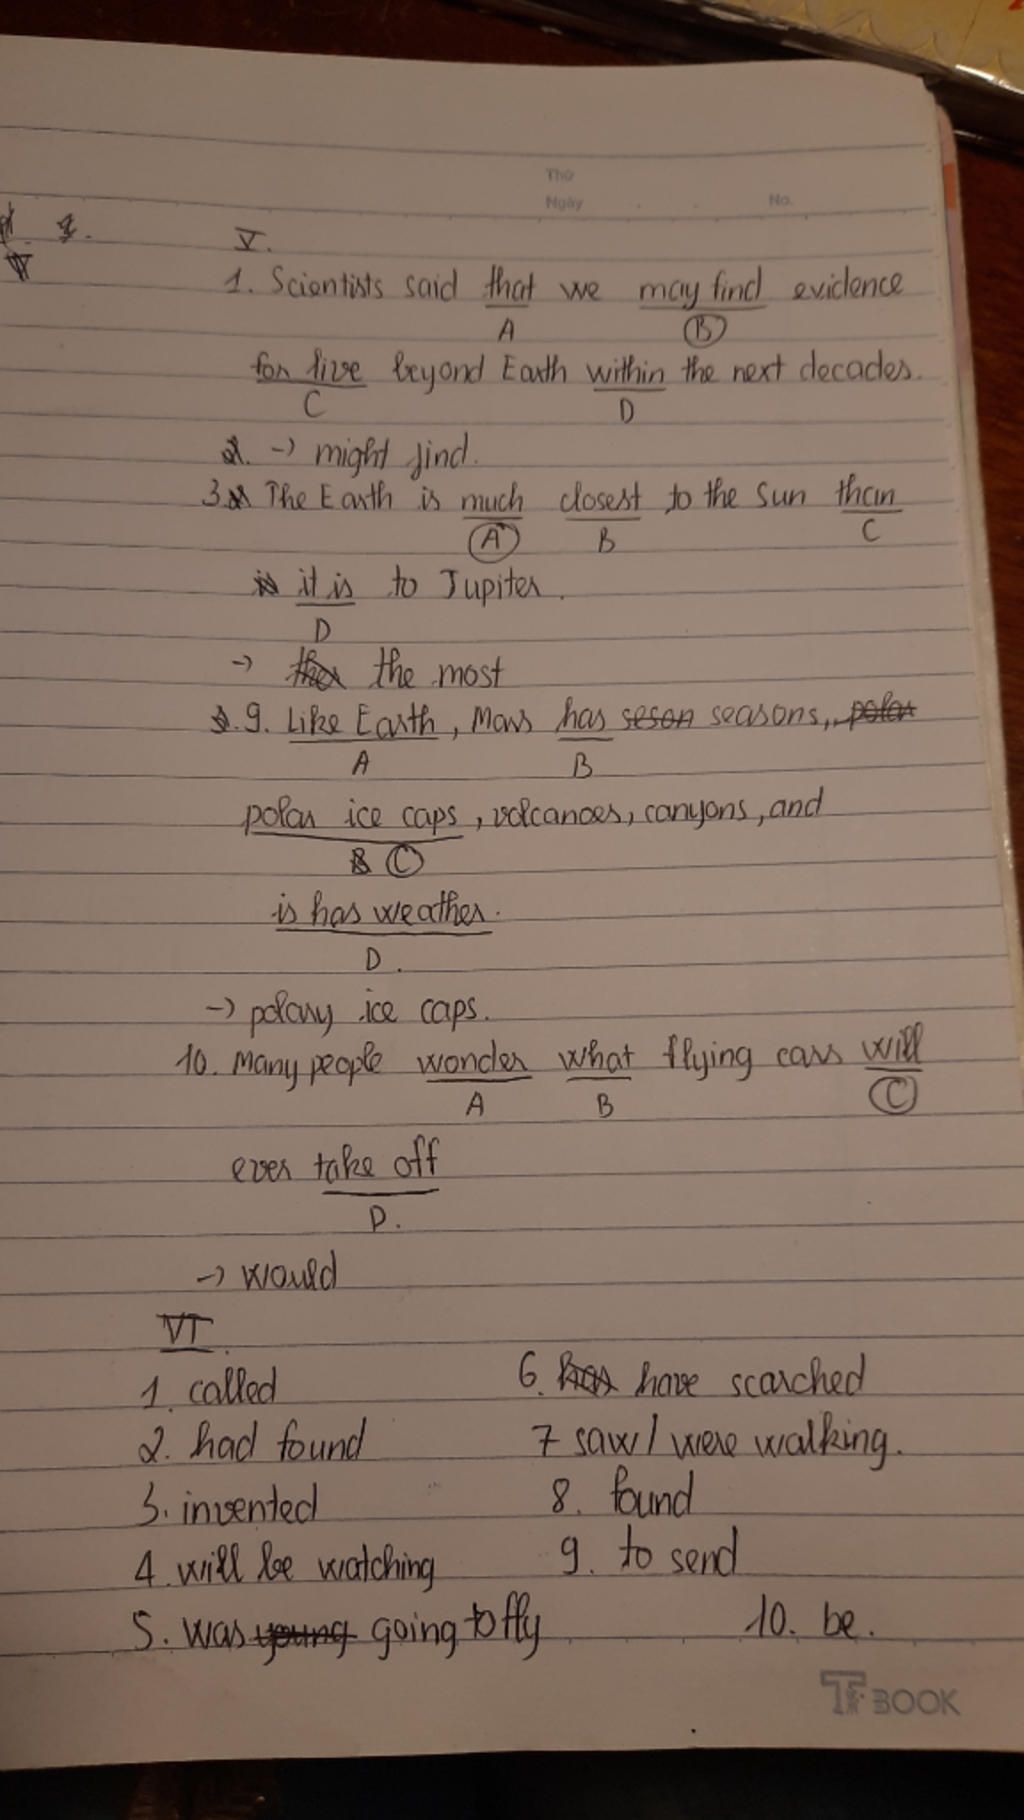 Thứ
Ngày No.
V.
1. Scientists said that we may find evidence
A B
for live beyond Earth within the next decades.
C D
2. -> might find.
3. The Earth is much closest to the Sun than
A B C
it is to Jupiter.
D
-> the most
9. Like Earth, Mars has seson seasons, polar
A B
polar ice caps, volcanoes, canyons, and
B C
is has weather.
D.
-> polary ice caps.
10. Many people wonder what flying cars will
A B C
ever take off
D.
-> would
VI
1. called 6. has have scarched
2. had found 7 saw / were walking.
3. invented 8. found
4. will be watching 9. to send
5. was young going to fly 10. be.
BOOK